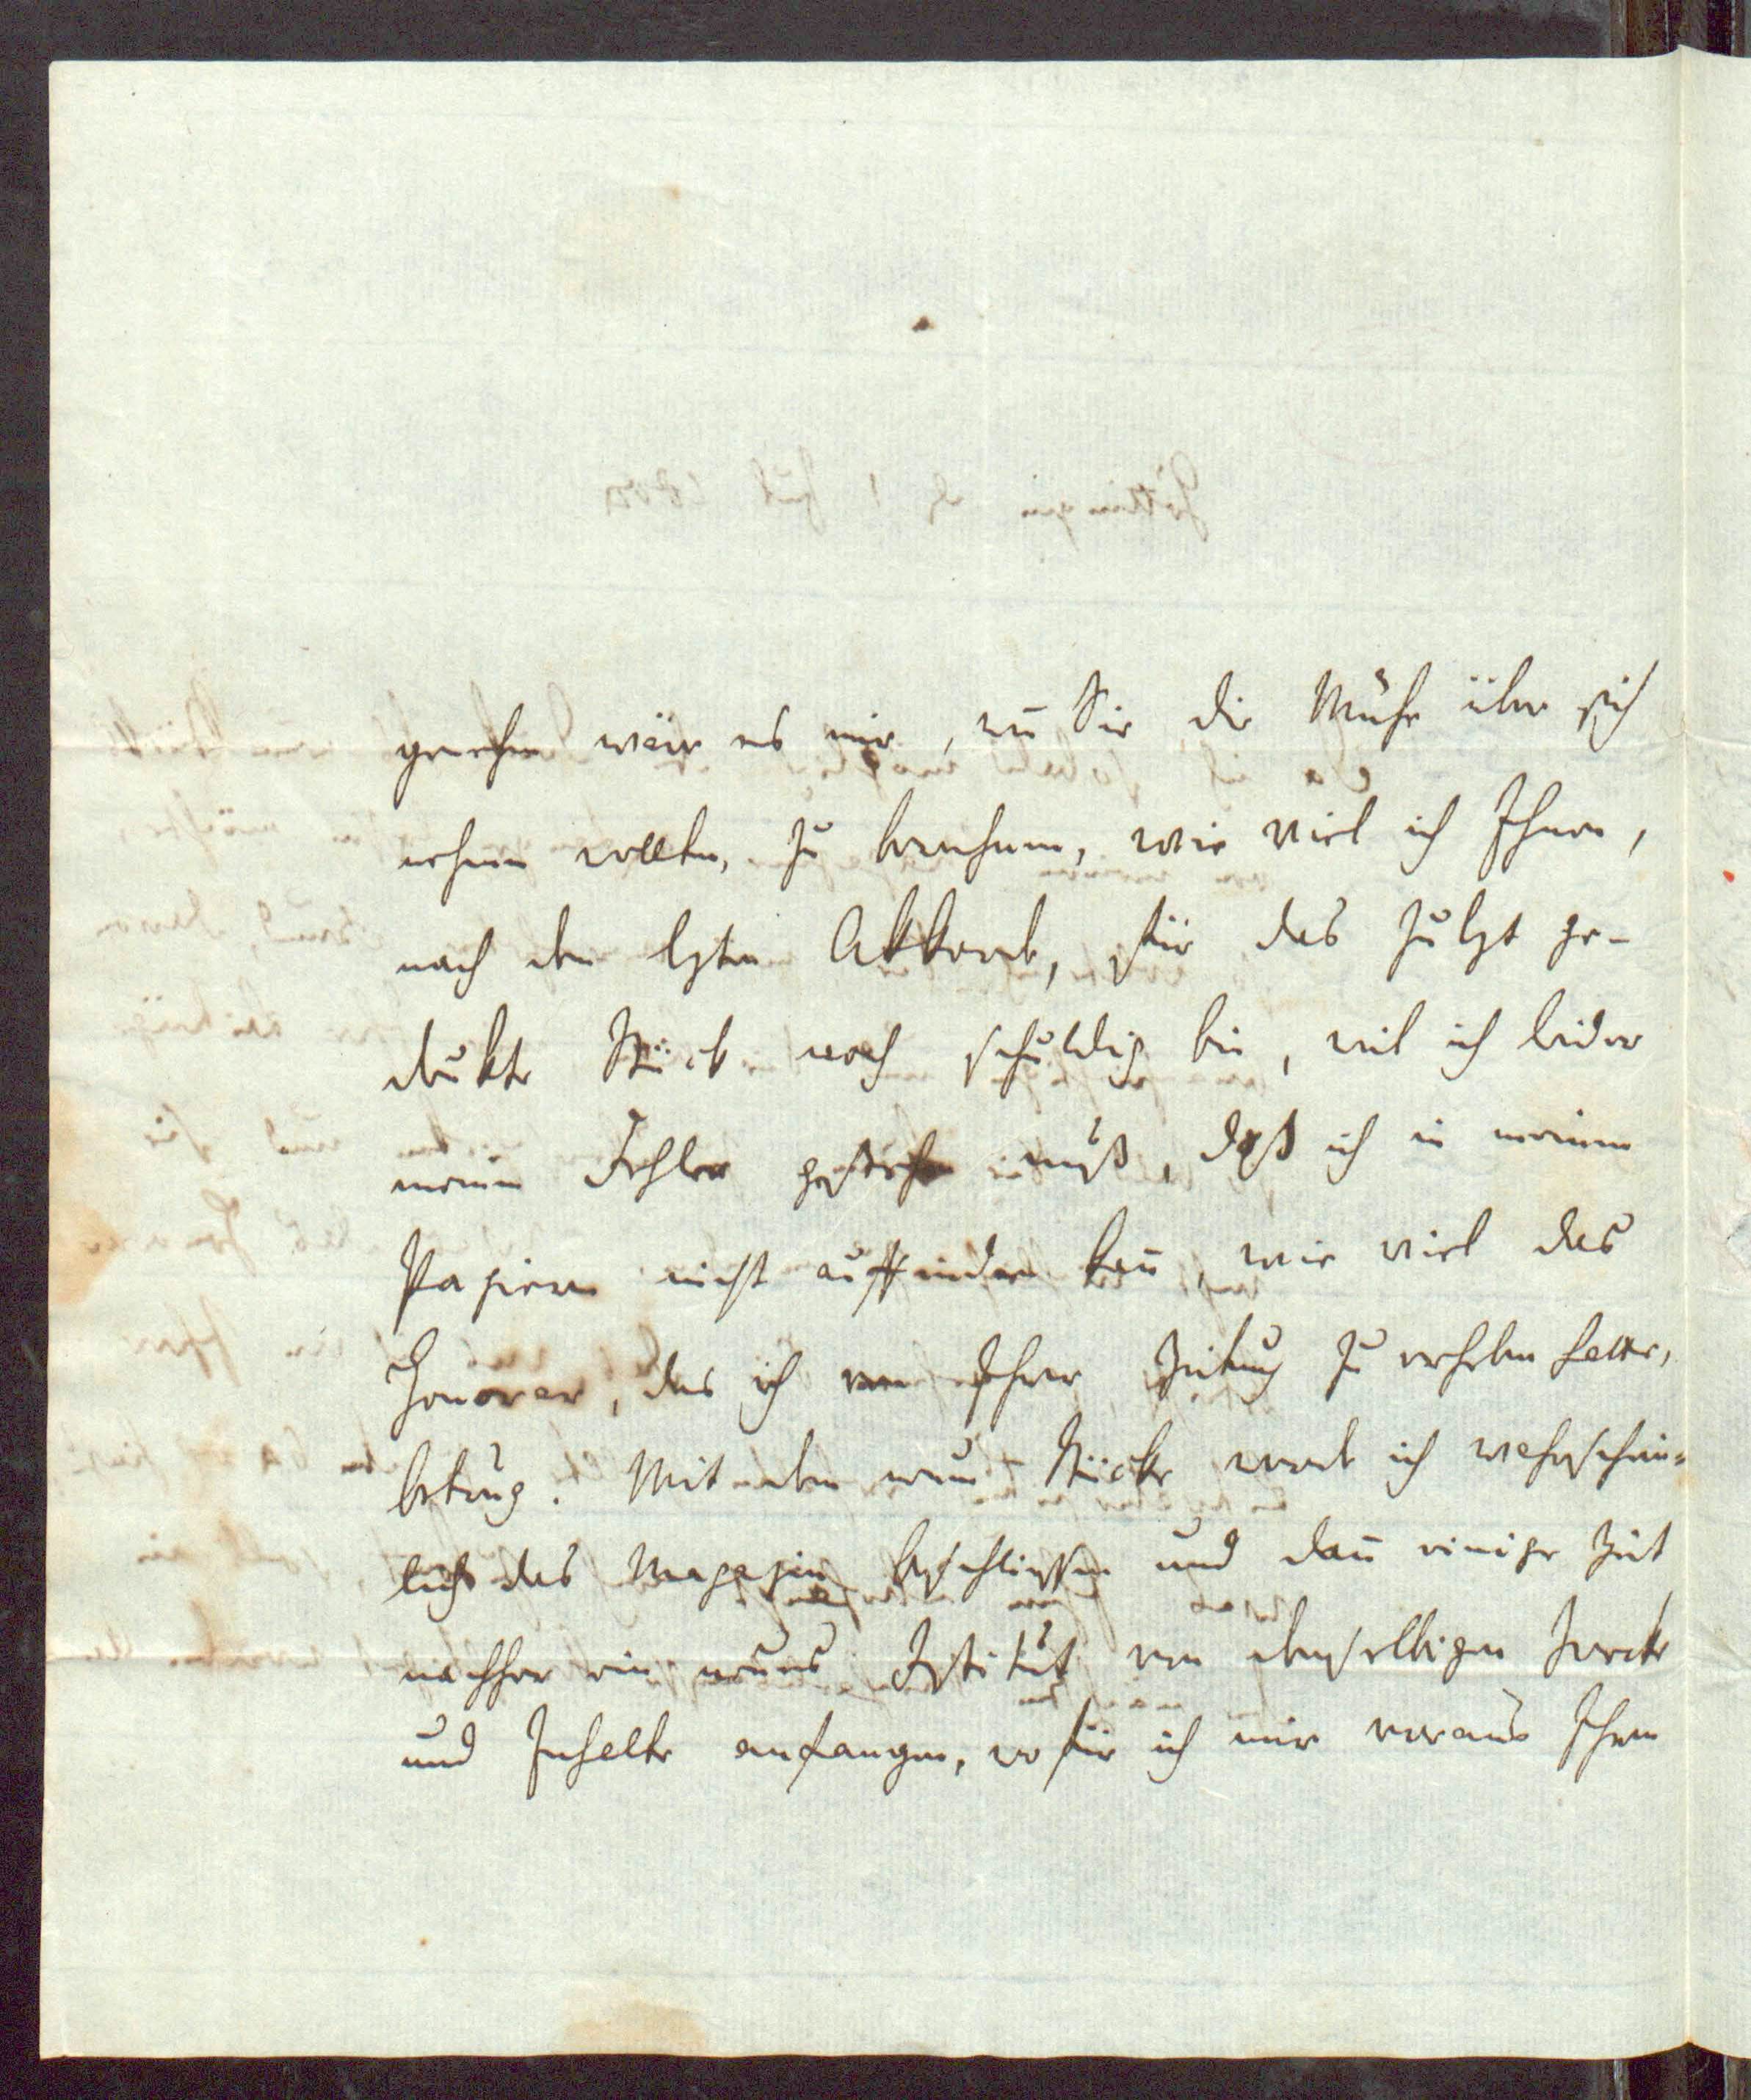 genehm wäre es mir, weñ Sie die Mühe über sich
nehmen wollten, zu berechnen, wie viel ich Ihnen,
nach dem lezten Akkorde, für das zulezt ge-
dukte Stück noch schuldig bin, weil ich leider
meinen Fehler gestehen muß, daß ich in meinen
Papieren nicht auffinden kañ, wie viel das
Honorar, das ich von Ihrer Zeitung zu erheben hatte,
betrug. Mit dem neuen Stücke werde ich wahrschein=
lich das Magazin beschliessen und dañ einige Zeit
nachher ein neues Istitut von demselbigen Zwecke
und Inhalte anfangen, wofür ich mir voraus Ihren